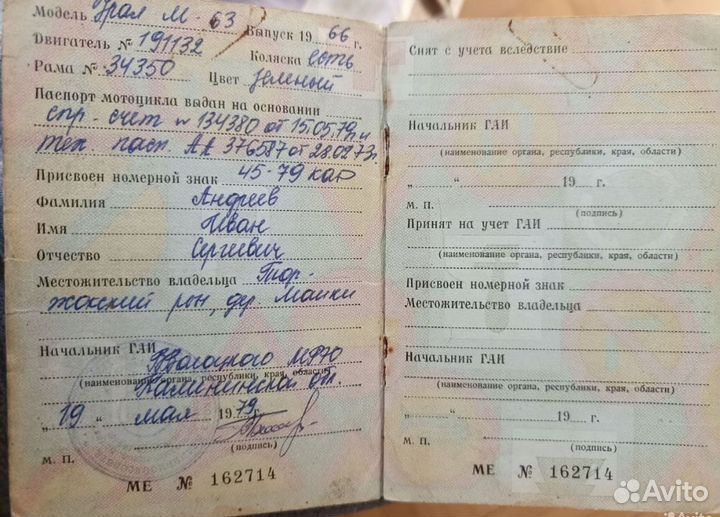 Модель Урал М-63 Выпуск 1966 г.
Двигатель № 191132 Коляска есть
Рама № 34350 Цвет зеленый
Паспорт мотоцикла выдан на основании
спр-счет № 134380 от 15.05.79 и
тех. пасп. АА 376587 от 28.02.73
Присвоен номерной знак 45-79 као
Фамилия Андреев
Имя Иван
Отчество Сергиевич
Местожительство владельца Тор-
жокский рон, дер. Маики
Начальник ГАИ МРЭО
(наименование органа, республики, края, области)
Калининской об.
„19“ мая 1979 г.
(подпись)
М. П.
МЕ № 162714
Снят с учета вследствие
Начальник ГАИ
(наименование органа, республики, края, области)
„ “ 19 г.
М. П.
(подпись)
Принят на учет ГАИ
(наименование органа, республики, края, области)
Присвоен номерной знак
Местожительство владельца
Начальник ГАИ
(наименование органа, республики, края, области)
„ “ 19 г.
(подпись)
М. П.
МЕ № 162714
Avito